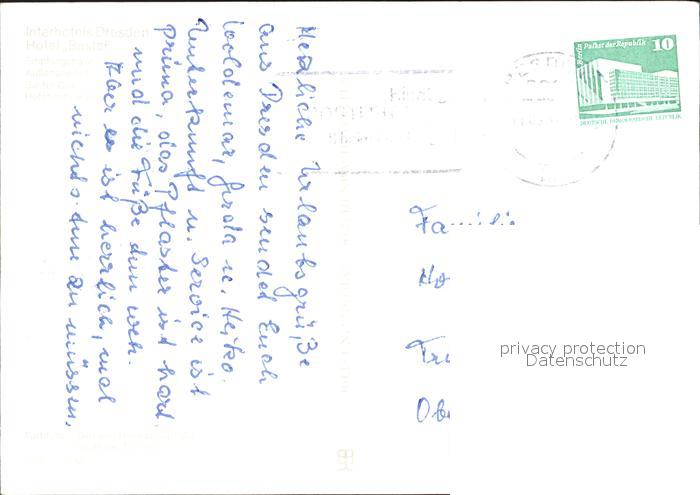 Interhotels Dresden
Hotel „Bastei"
Herzliche Urlaubsgrüße
aus Dresden sendet Euch
Woldemar, Gerda u. Heiko.
Unterkunft u. Service ist
prima, das Pflaster ist hart
und die Füße tun weh.
Aber es ist herrlich, mal
nichts tun zu müssen.
Berlin Palast der Republik 10
DEUTSCHE DEMOKRATISCHE REPUBLIK
Familie
privacy protection
Datenschutz